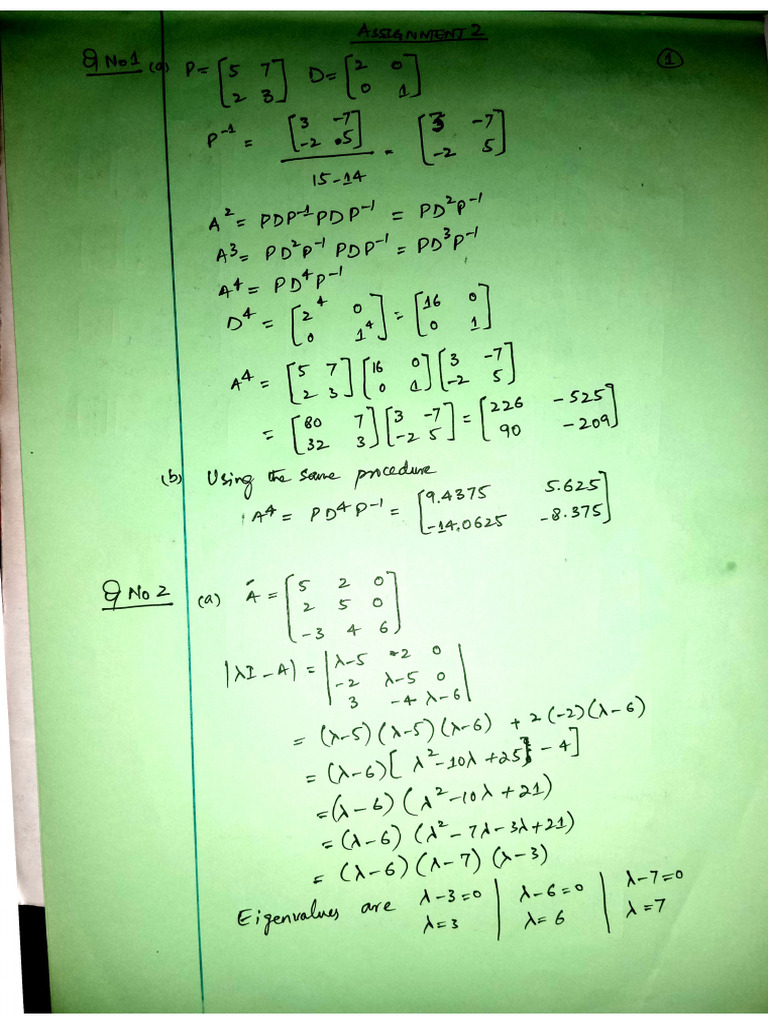 ASSIGNMENT 2
Q No 1 (a) P = [5 7; 2 3] D = [2 0; 0 1] ①
P⁻¹ = [3 -7; -2 5] / 15-14 = [3 -7; -2 5]
A² = PDP⁻¹PDP⁻¹ = PD²P⁻¹
A³ = PD²P⁻¹ PDP⁻¹ = PD³P⁻¹
A⁴ = PD⁴P⁻¹
D⁴ = [2⁴ 0; 0 1⁴] = [16 0; 0 1]
A⁴ = [5 7; 2 3] [16 0; 0 1] [3 -7; -2 5]
= [80 7; 32 3] [3 -7; -2 5] = [226 -525; 90 -209]
(b) Using the same procedure
A⁴ = PD⁴P⁻¹ = [9.4375 5.625; -14.0625 -8.375]
Q No 2 (a) A = [5 2 0; 2 5 0; -3 4 6]
|λI - A| = |λ-5 -2 0; -2 λ-5 0; 3 -4 λ-6|
= (λ-5)(λ-5)(λ-6) + 2(-2)(λ-6)
= (λ-6)[λ²-10λ+25 - 4]
= (λ-6)(λ²-10λ+21)
= (λ-6)(λ²-7λ-3λ+21)
= (λ-6)(λ-7)(λ-3)
Eigenvalues are λ-3=0 | λ-6=0 | λ-7=0
λ=3 | λ=6 | λ=7